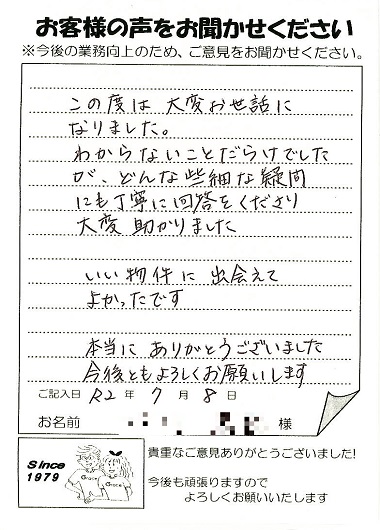 お客様の声をお聞かせください
※今後の業務向上のため、ご意見をお聞かせください。
この度は 大変お世話に
なりました。
わからないことだらけでした
が、どんな些細な疑問
にも丁寧に回答をくださり
大変 助かりました
いい物件に 出会えて
よかったです
本当に ありがとうございました
今後ともよろしくお願いします
ご記入日 R2 年 7 月 8 日
お名前 様
Since
1979
Grace
Grace
貴重なご意見ありがとうございました!
今後も頑張りますので
よろしくお願いいたします